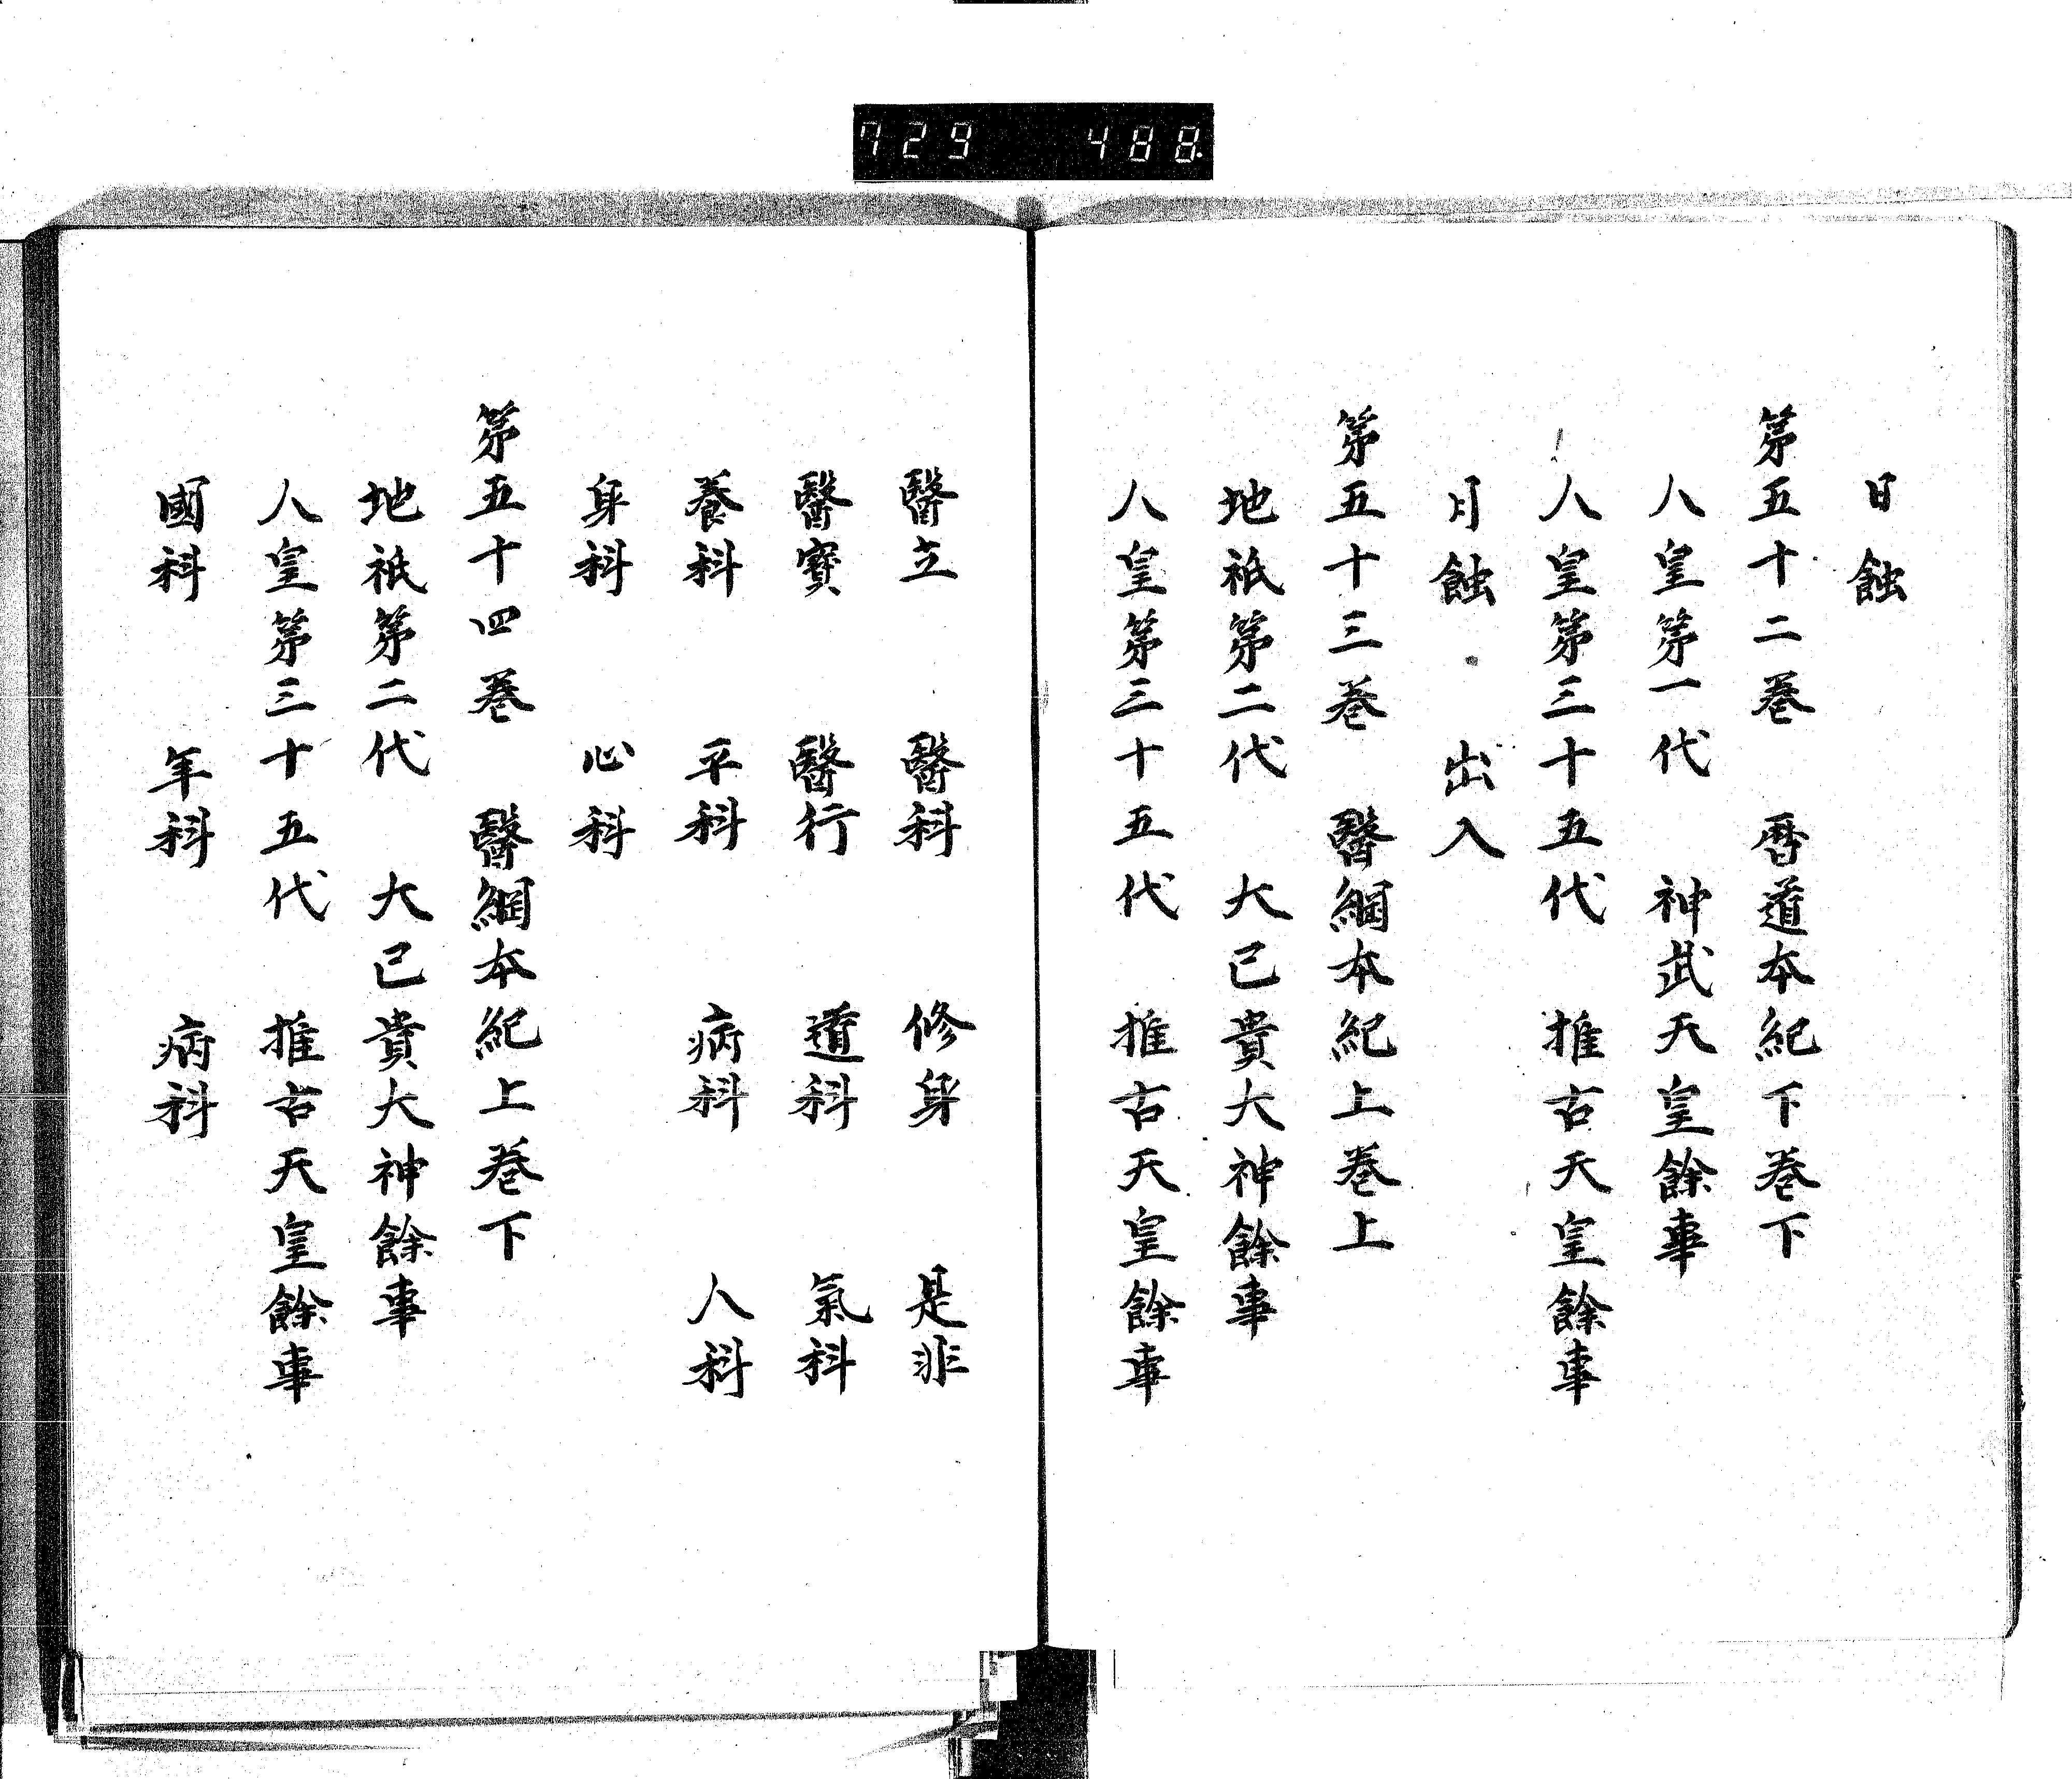 729 488
日蝕
第五十二巻 暦道本紀下巻下
人皇第一代 神武天皇餘事
人皇第三十五代 推古天皇餘事
月蝕 出入
第五十三巻 醫綱本紀上巻上
地祇第二代 大己貴大神餘事
人皇第三十五代 推古天皇餘事
醫立 醫科 修身 是非
醫寳 醫行 道科 氣科
養科 平科 病科 人科
身科 心科
第五十四巻 醫綱本紀上巻下
地祇第二代 大己貴大神餘事
人皇第三十五代 推古天皇餘事
國科 年科 病科